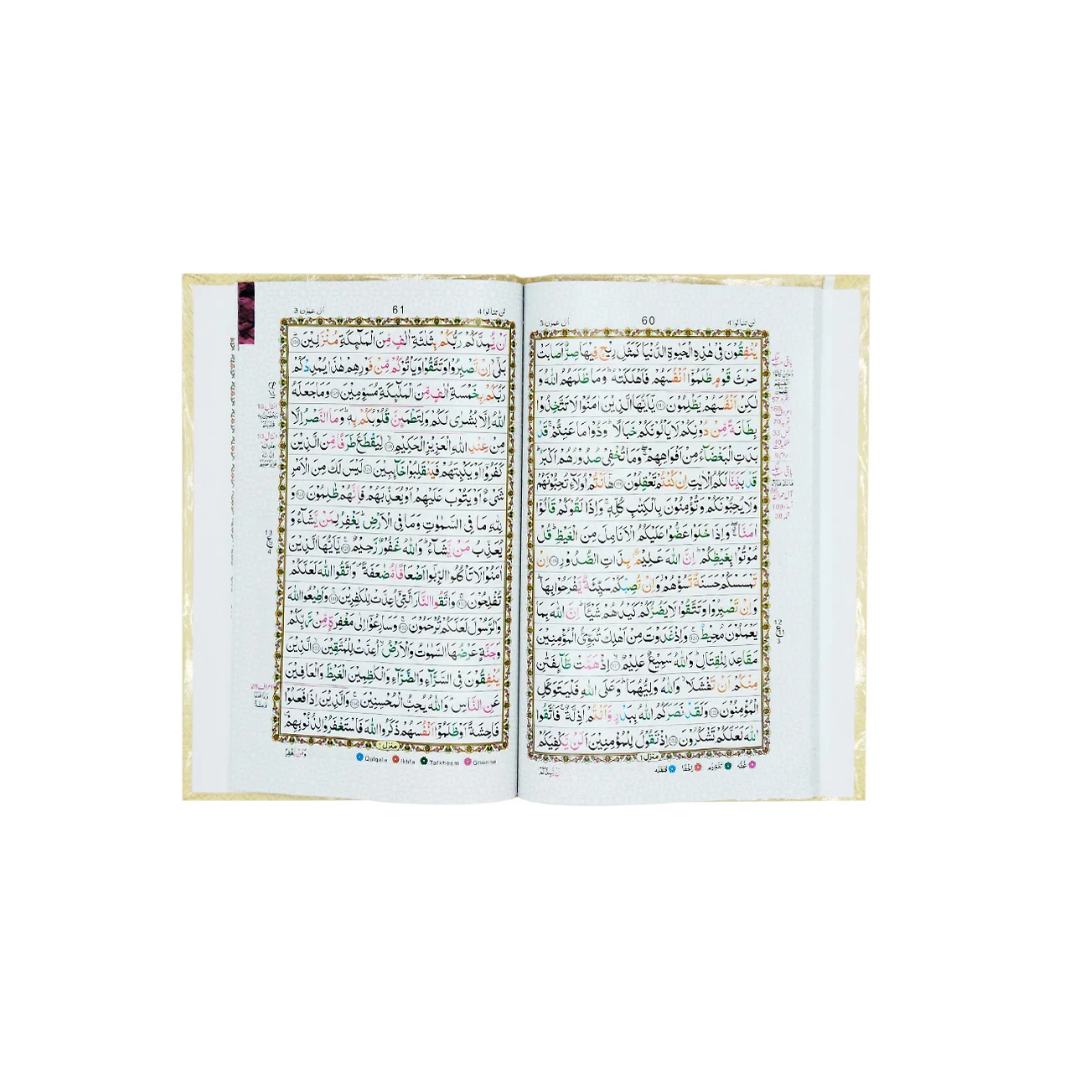 اٰلِ عِمْرٰن 3 60 لن تنالوا 4
يُنْفِقُوْنَ فِيْ هٰذِهِ الْحَيٰوةِ الدُّنْيَا كَمَثَلِ رِيْحٍ فِيْهَا صِرٌّ اَصَابَتْ
حَرْثَ قَوْمٍ ظَلَمُوْۤا اَنْفُسَهُمْ فَاَهْلَكَتْهُ ؕ وَمَا ظَلَمَهُمُ اللّٰهُ وَ
لٰكِنْ اَنْفُسَهُمْ يَظْلِمُوْنَ يٰۤاَيُّهَا الَّذِيْنَ اٰمَنُوْا لَا تَتَّخِذُوْا
بِطَانَةً مِّنْ دُوْنِكُمْ لَا يَاْلُوْنَكُمْ خَبَالًا ؕ وَدُّوْا مَا عَنِتُّمْ ۚ قَدْ
بَدَتِ الْبَغْضَآءُ مِنْ اَفْوَاهِهِمْ ۖ وَمَا تُخْفِيْ صُدُوْرُهُمْ اَكْبَرُ ؕ
قَدْ بَيَّنَّا لَكُمُ الْاٰيٰتِ اِنْ كُنْتُمْ تَعْقِلُوْنَ هٰۤاَنْتُمْ اُولَآءِ تُحِبُّوْنَهُمْ
وَلَا يُحِبُّوْنَكُمْ وَتُؤْمِنُوْنَ بِالْكِتٰبِ كُلِّهٖ ۚ وَاِذَا لَقُوْكُمْ قَالُوْۤا
اٰمَنَّا ۖ وَاِذَا خَلَوْا عَضُّوْا عَلَيْكُمُ الْاَنَامِلَ مِنَ الْغَيْظِ ؕ قُلْ
مُوْتُوْا بِغَيْظِكُمْ ؕ اِنَّ اللّٰهَ عَلِيْمٌۢ بِذَاتِ الصُّدُوْرِ اِنْ
تَمْسَسْكُمْ حَسَنَةٌ تَسُؤْهُمْ ۖ وَاِنْ تُصِبْكُمْ سَيِّئَةٌ يَّفْرَحُوْا بِهَا ؕ
وَاِنْ تَصْبِرُوْا وَتَتَّقُوْا لَا يَضُرُّكُمْ كَيْدُهُمْ شَيْـًٔا ؕ اِنَّ اللّٰهَ بِمَا
يَعْمَلُوْنَ مُحِيْطٌ وَاِذْ غَدَوْتَ مِنْ اَهْلِكَ تُبَوِّئُ الْمُؤْمِنِيْنَ
مَقَاعِدَ لِلْقِتَالِ ؕ وَاللّٰهُ سَمِيْعٌ عَلِيْمٌ اِذْ هَمَّتْ طَّآئِفَتٰنِ
مِنْكُمْ اَنْ تَفْشَلَا ۙ وَاللّٰهُ وَلِيُّهُمَا ؕ وَعَلَى اللّٰهِ فَلْيَتَوَكَّلِ
الْمُؤْمِنُوْنَ وَلَقَدْ نَصَرَكُمُ اللّٰهُ بِبَدْرٍ وَّاَنْتُمْ اَذِلَّةٌ ۚ فَاتَّقُوا
اللّٰهَ لَعَلَّكُمْ تَشْكُرُوْنَ اِذْ تَقُوْلُ لِلْمُؤْمِنِيْنَ اَلَنْ يَّكْفِيَكُمْ
منزل ١
غنّه تفخیم اخفا قلقله
اٰلِ عِمْرٰن 3 61 لن تنالوا 4
اَنْ يُّمِدَّكُمْ رَبُّكُمْ بِثَلٰثَةِ اٰلٰفٍ مِّنَ الْمَلٰٓئِكَةِ مُنْزَلِيْنَ
بَلٰۤى ۙ اِنْ تَصْبِرُوْا وَتَتَّقُوْا وَيَاْتُوْكُمْ مِّنْ فَوْرِهِمْ هٰذَا يُمْدِدْكُمْ
رَبُّكُمْ بِخَمْسَةِ اٰلٰفٍ مِّنَ الْمَلٰٓئِكَةِ مُسَوِّمِيْنَ وَمَا جَعَلَهُ
اللّٰهُ اِلَّا بُشْرٰى لَكُمْ وَلِتَطْمَئِنَّ قُلُوْبُكُمْ بِهٖ ؕ وَمَا النَّصْرُ اِلَّا
مِنْ عِنْدِ اللّٰهِ الْعَزِيْزِ الْحَكِيْمِ لِيَقْطَعَ طَرَفًا مِّنَ الَّذِيْنَ
كَفَرُوْۤا اَوْ يَكْبِتَهُمْ فَيَنْقَلِبُوْا خَآئِبِيْنَ لَيْسَ لَكَ مِنَ الْاَمْرِ
شَيْءٌ اَوْ يَتُوْبَ عَلَيْهِمْ اَوْ يُعَذِّبَهُمْ فَاِنَّهُمْ ظٰلِمُوْنَ وَ
لِلّٰهِ مَا فِي السَّمٰوٰتِ وَمَا فِي الْاَرْضِ ؕ يَغْفِرُ لِمَنْ يَّشَآءُ وَ
يُعَذِّبُ مَنْ يَّشَآءُ ؕ وَاللّٰهُ غَفُوْرٌ رَّحِيْمٌ يٰۤاَيُّهَا الَّذِيْنَ
اٰمَنُوْا لَا تَاْكُلُوا الرِّبٰۤوا اَضْعَافًا مُّضٰعَفَةً ۪ وَاتَّقُوا اللّٰهَ لَعَلَّكُمْ
تُفْلِحُوْنَ وَاتَّقُوا النَّارَ الَّتِيْۤ اُعِدَّتْ لِلْكٰفِرِيْنَ وَاَطِيْعُوا اللّٰهَ
وَالرَّسُوْلَ لَعَلَّكُمْ تُرْحَمُوْنَ وَسَارِعُوْۤا اِلٰى مَغْفِرَةٍ مِّنْ رَّبِّكُمْ
وَجَنَّةٍ عَرْضُهَا السَّمٰوٰتُ وَالْاَرْضُ ۙ اُعِدَّتْ لِلْمُتَّقِيْنَ الَّذِيْنَ
يُنْفِقُوْنَ فِي السَّرَّآءِ وَالضَّرَّآءِ وَالْكٰظِمِيْنَ الْغَيْظَ وَالْعَافِيْنَ
عَنِ النَّاسِ ؕ وَاللّٰهُ يُحِبُّ الْمُحْسِنِيْنَ وَالَّذِيْنَ اِذَا فَعَلُوْا
فَاحِشَةً اَوْ ظَلَمُوْۤا اَنْفُسَهُمْ ذَكَرُوا اللّٰهَ فَاسْتَغْفَرُوْا لِذُنُوْبِهِمْ ۪
منزل ١
وَمَنْ يَّغْفِرُ
Qalqala Ikhfa Tafkheem Ghunna